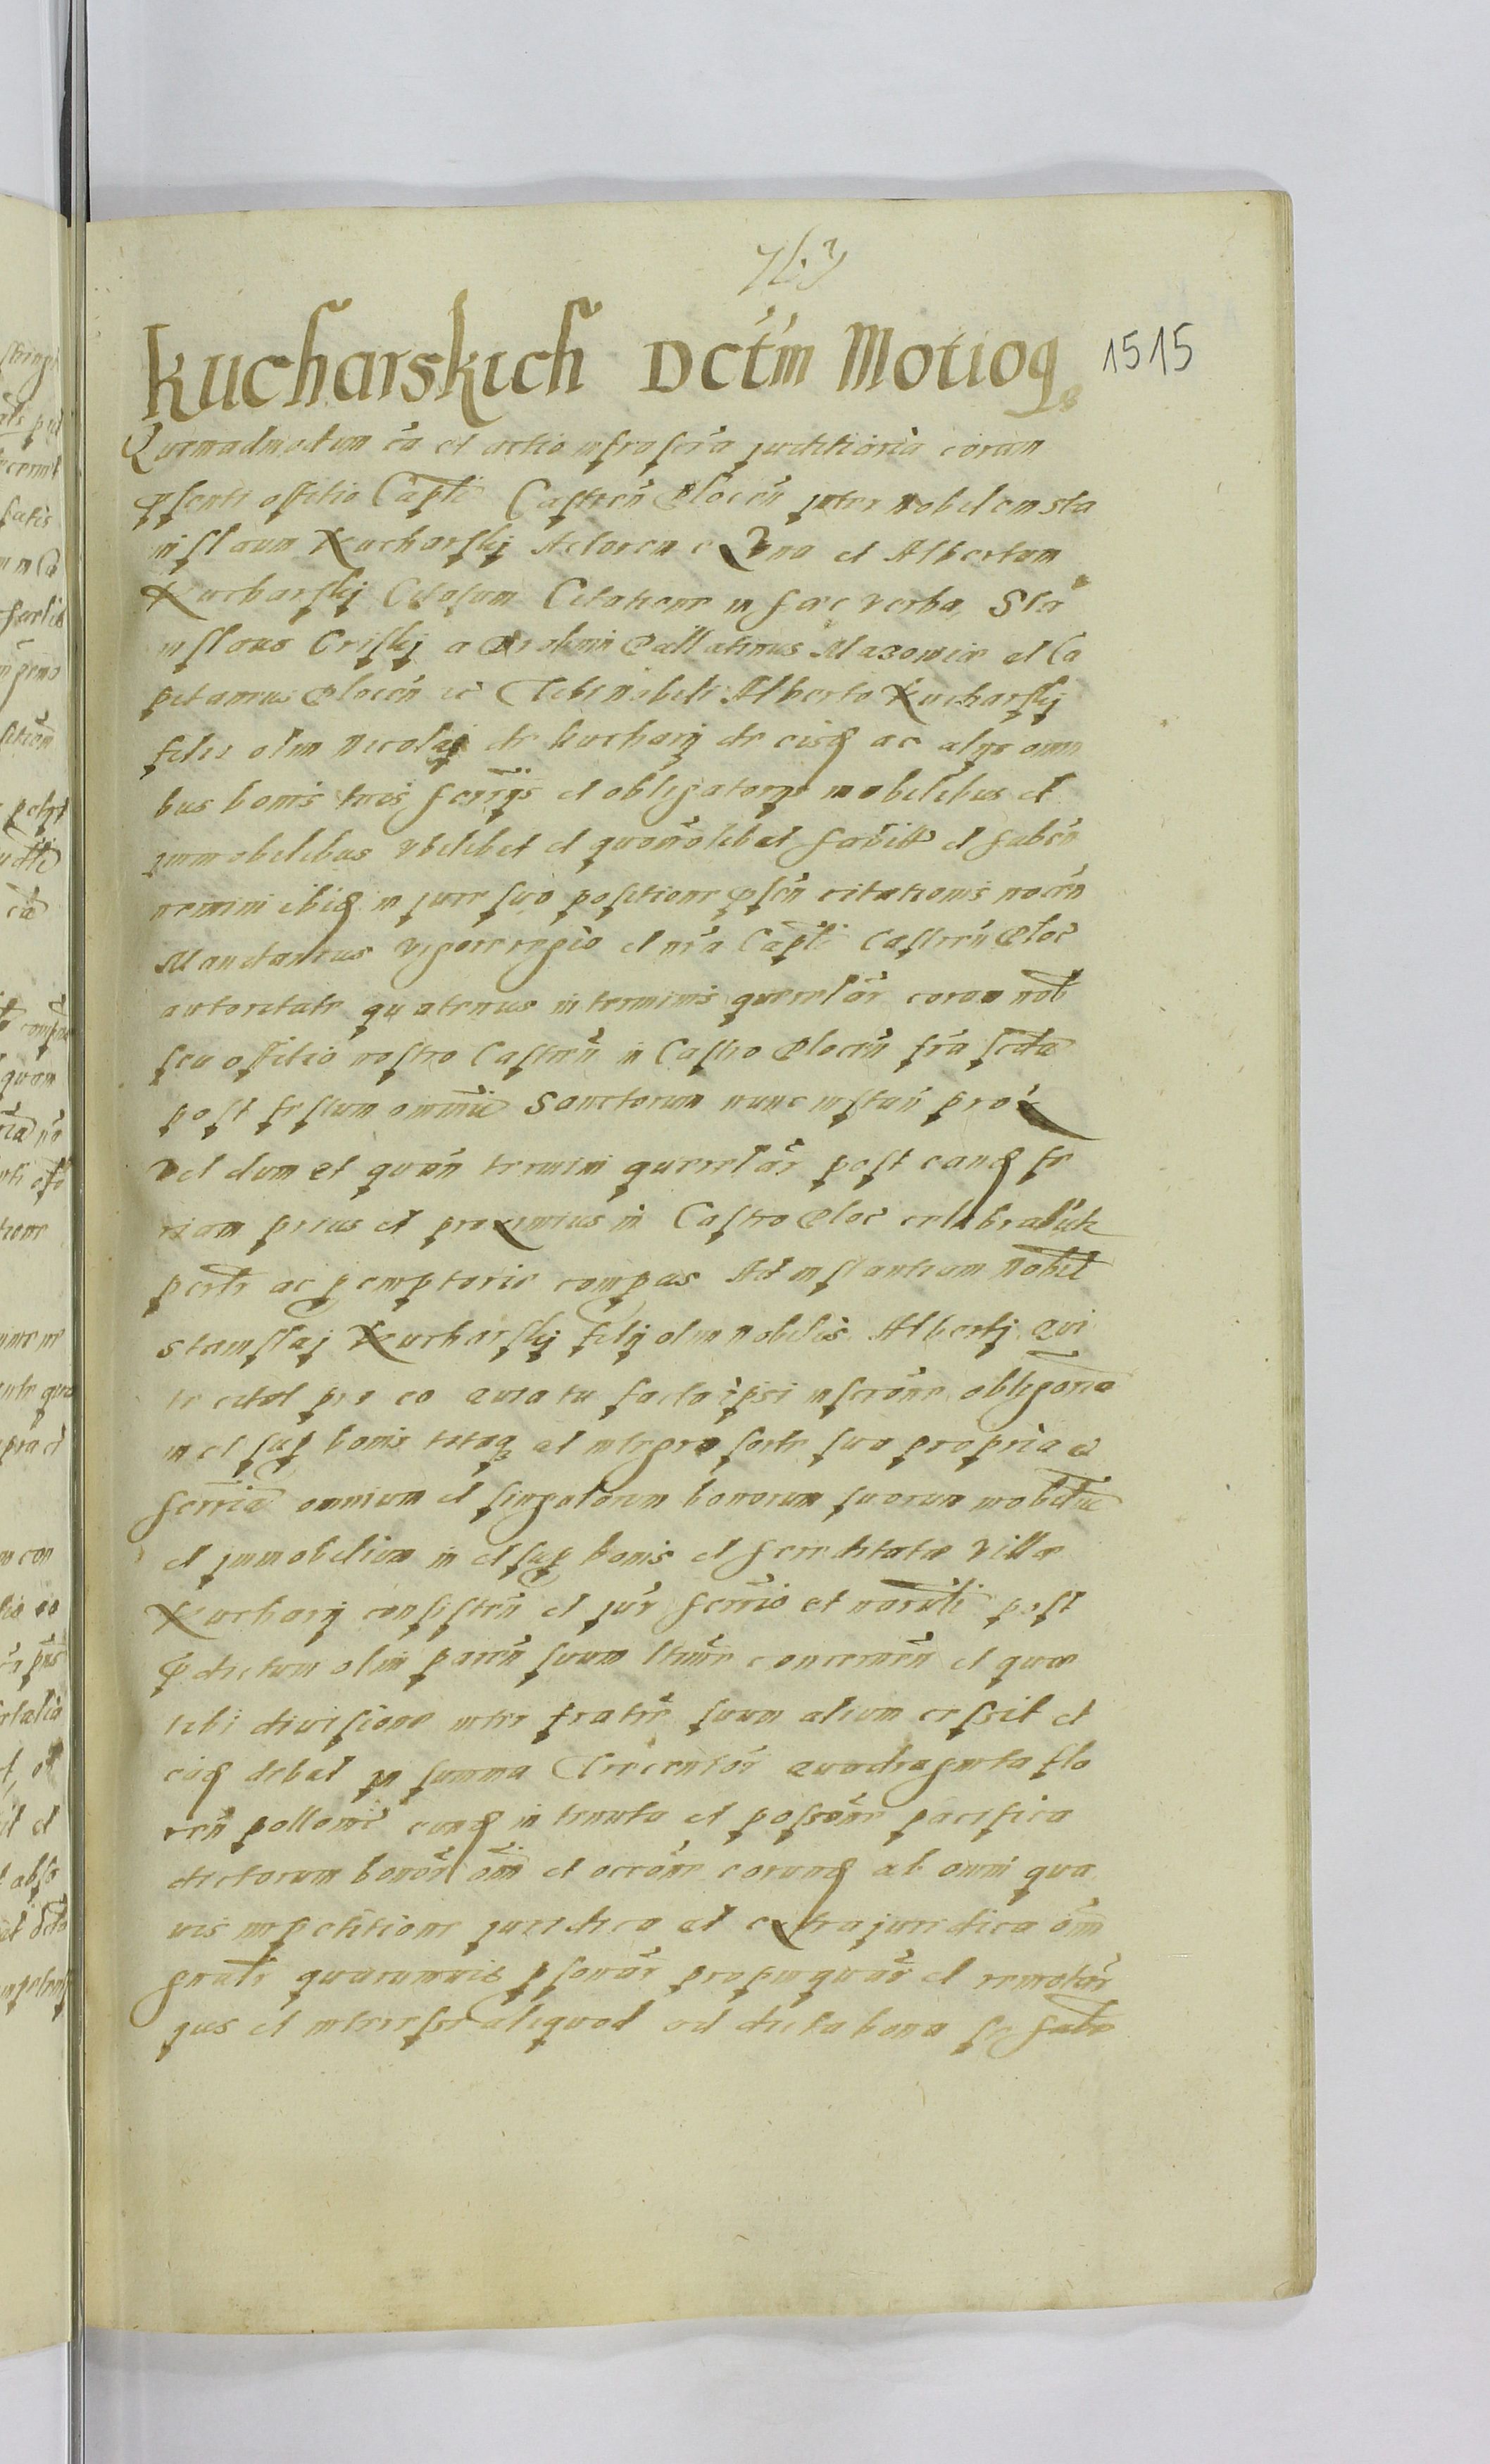 763
Kucharskich Dctm Motioq
1515
Quemadmodum ca et actio infrascra judiciaria coram
pnti officio Capli Castren Plocen inter nobilem Sta
nislaum Kucharskj Actorem ex una et Albertum
Kucharskj Citatum Citatione in haec verba, Sta
nislaus Criskj a Drobnin Pallatinus Mazowiae et Ca
pitaneus Plocen etc Tibi nobili Alberto Kucharskj
filio olim Nicolaj de Kuchary de eisq ac alys omni
bus bonis tuis herrijs et obligatorys mobilibus et
immobilibus ubilibet et quomolibet habitt et haben
nemini ibiq in jure suo positione psen citationis nocen
Mandamus vigore regio et nra Capli Castren Ploc
autoritate quatenus in terminis querelar coram nob
seu officio nostro Castren in Castro Plocen fria scda
post festum omniu Sanctorum nunc instan prox
vel dum et quan termini querelar post eanq fe
riam prius et proximius in Castro Ploc celebrabutr
perlr ac pemptorie compas Ad instantiam Nobil
Stanislaj Kucharskj filij olim nobilis Albertj qui
te citat pro eo quia tu facta ipsi inscrone obligoria
in et sup bonis totaq et integra sorte sua propria e
herria omnium et singulorum bonorum suorum mobiliu
et immobilium in et sup bonis et herreditate villae
Kuchary consisten et jur herrio et naruli post
pdictum olim paren suum ltime concernen et quae
tibi divisione inter fratre suum alium cessit et
eaq debet in summa Trecentor quadraginta flo
ren polloni eunq in tenuta et possone pacifica
dictorum bonor om et occone eorunq ab omni qua
vis impetitione juridica et extrajuridica om
gnalr quarumvis psonar propinquar et remotar
jus et interesse aliquod ad dicta bona se habe